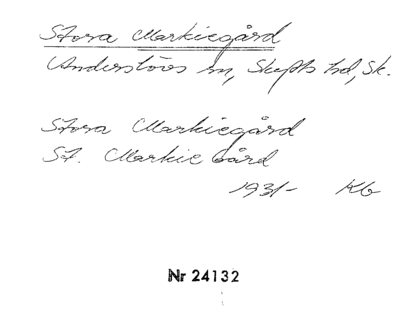 Stora Markiegård
Anderslövs sn, Skytts hd, Sk.
Stora Markiegård
St. Markie Gård
1931- Kb
Nr 24132